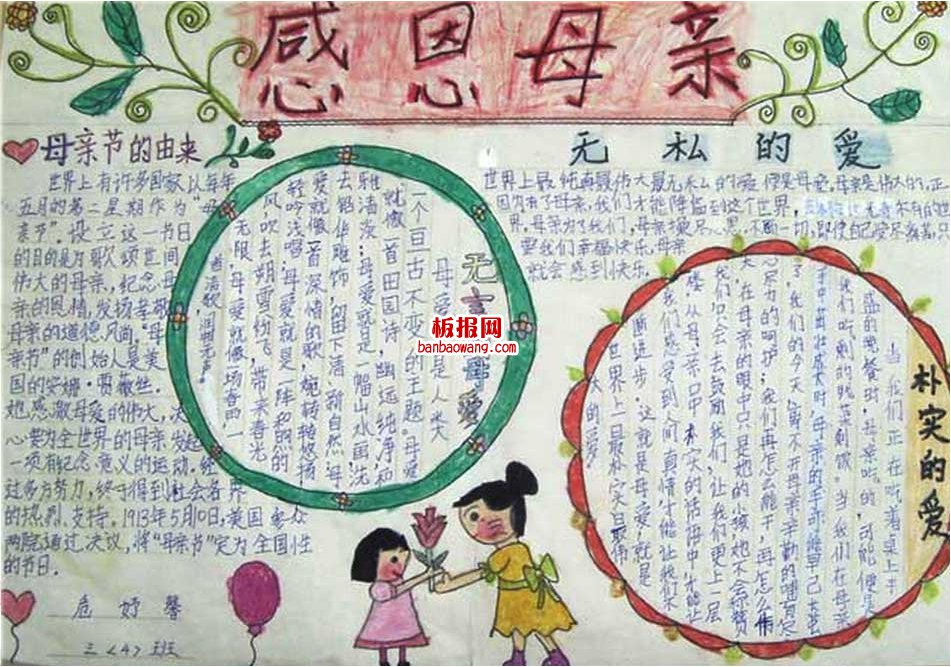 感恩母亲
母亲节的由来
世界上有许多国家以每年
五月的第二星期作为“母
亲节”。设立这一节日
的目的是为歌颂世间
伟大的母亲，纪念母
亲的恩情，发扬孝敬
母亲的道德风尚。“母
亲节”的创始人是美
国的安娜·贾薇丝。
她感激母爱的伟大，决
心要为全世界的母亲发起
一项有纪念意义的运动。经
过多方努力，终于得到社会各界
的热烈支持。1913年5月10日，美国参众
两院通过决议，将“母亲节”定为全国性
的节日。
危妤馨
三〈4〉班
无言的母爱
母爱是人类
一个亘古不变的主题。母爱
就像一首田园诗，幽远纯净，和
雅清淡；母爱就是一幅山水画，洗
去铅华雕饰，留下清新自然；母
爱就像一首深情的歌，婉转悠扬，
轻吟浅唱；母爱就是一阵和煦的
风，吹去朔雪纷飞，带来春光
无限，母爱就像一场春雨一
首清歌，
板报网
banbaowang.com
无私的爱
世界上最纯真最伟大最无私的爱便是母爱，母亲是伟大的，正
因为有了母亲，我们才能降临到这个世界，
世界，母亲为了我们，母亲会竭尽心思，不顾一切，即使自己受尽痛苦，只
要我们幸福快乐，母亲
就会感到快乐。
朴实的爱
当我们正在吃着桌上丰
盛的晚餐时，母亲吃的，可能便是
我们吃剩的晚菜剩饭。当我们在母亲
手中茁壮成长时，母亲的手亦能早已老去
了，我们的今天，离不开母亲辛勤的哺育，尽
心尽力的呵护；我们再怎么能干，再怎么伟
大，在母亲的眼中只是她的小孩，她不会称赞
我们，只会去鼓励我们，让我们更上一层
楼，从母亲口中朴实的话语中，才能让
我们感受到人间真情，才能让我们不
断进步，这就是母爱，就是
世界上一最朴实最伟
大的爱！